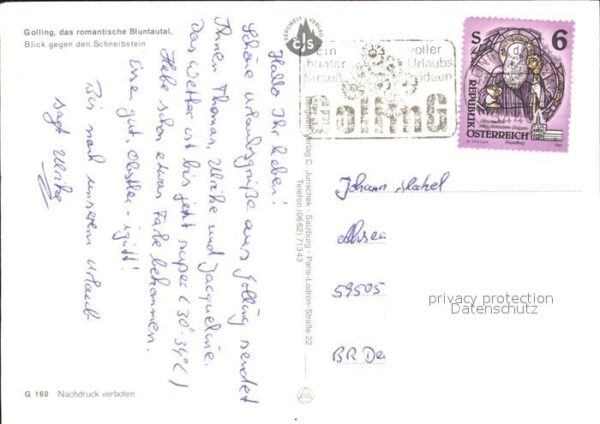 Golling, das romantische Bluntautal,
Blick gegen den Schneibstein
Hallo Ihr Lieben!
Schöne Urlaubsgrüße aus Golling sendet
Ihnen Thomas, Ulrike und Jacqueline.
Das Wetter ist bis jetzt super (30°-34°C)
Habe schon etwas Farbe bekommen.
igitt!
Bis nach unserem Urlaub
sagt Ulrike
G 160 Nachdruck verboten
BERGWELT VERLAG
CJS
C. Jurischek - Salzburg - Paris-Lodron-Straße 22
Telefon (0662) 71343
Ein voller
bunter Urlaubs
Strauß ideen
GollinG
S 6
REPUBLIK
ÖSTERREICH
Johann
59505
BR De
privacy protection
Datenschutz